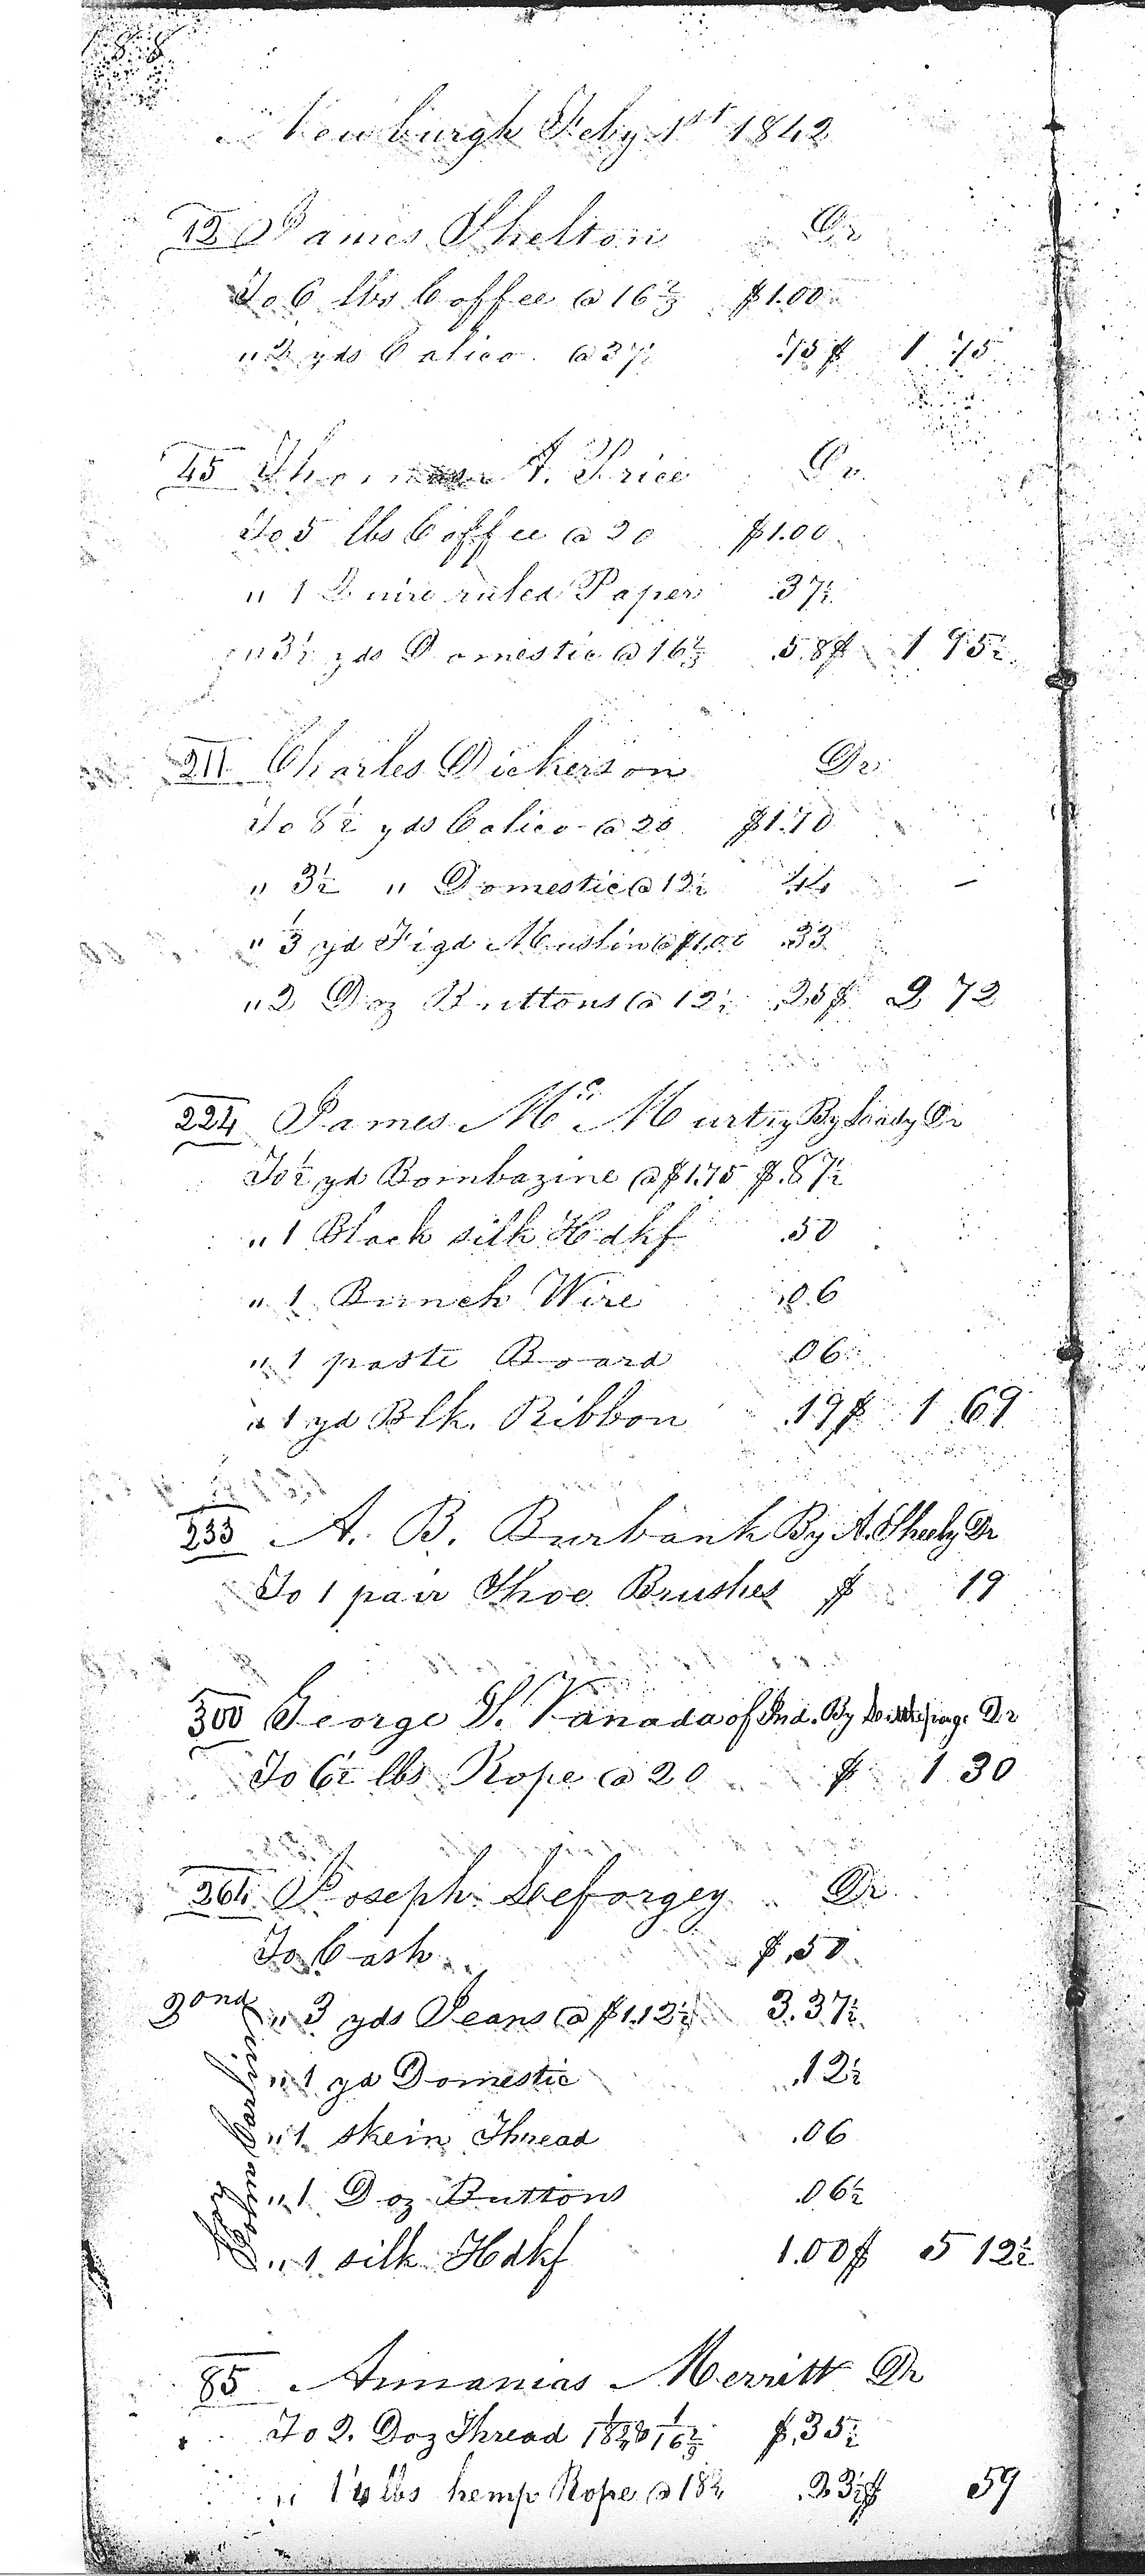 188
Newburgh Feby 1st 1842
12 James Shelton Dr
To 6 lbs Coffee @ 16 2/3 $1.00
" 2 yds Calico @ 37½ .75 $ 1 75
45 Thomas A. Price Dr
To 5 lbs Coffee @ 20 $1.00
" 1 Quire ruled Paper .37½
" 3½ yds Domestic @ 16 2/3 .58 $ 1 95½
211 Charles Dickerson Dr
To 8½ yds Calico @ 20 $1.70
" 3½ " Domestic @ 12½ .44
" 1/3 yd Figd Muslin @ $1.00 .33
" 2 Doz Buttons @ 12½ .25 $ 2 72
224 James Mc Murtry By Lady Dr
To ½ yd Bombazine @ $1.75 $.87½
" 1 Black silk Hdkf .50
" 1 Bunch Wire .06
" 1 paste Board 06
" 1 yd Blk. Ribbon .19 $ 1 69
233 A. B. Burbank By A. Sheely Dr
To 1 pair Shoe Brushes $ 19
300 George S. Vanada of Ind. By Dr
To 6½ lbs Rope @ 20 $ 1 30
264 Joseph Leforgey Dr
To Cash $.50
2ond " 3 yds Jeans @ $1.12½ 3.37½
" 1 yd Domestic .12½
" 1 skein Thread .06
" 1 Doz Buttons .06½
" 1 silk Hdkf 1.00 $ 5 12½
For John Carlin
85 Annanias Merritt Dr
To 2 Doz Thread 1/18¾ & 1/16 2/3 $.35½
" 1¼ lbs hemp Rope @ 18¾ .23½ $ 59